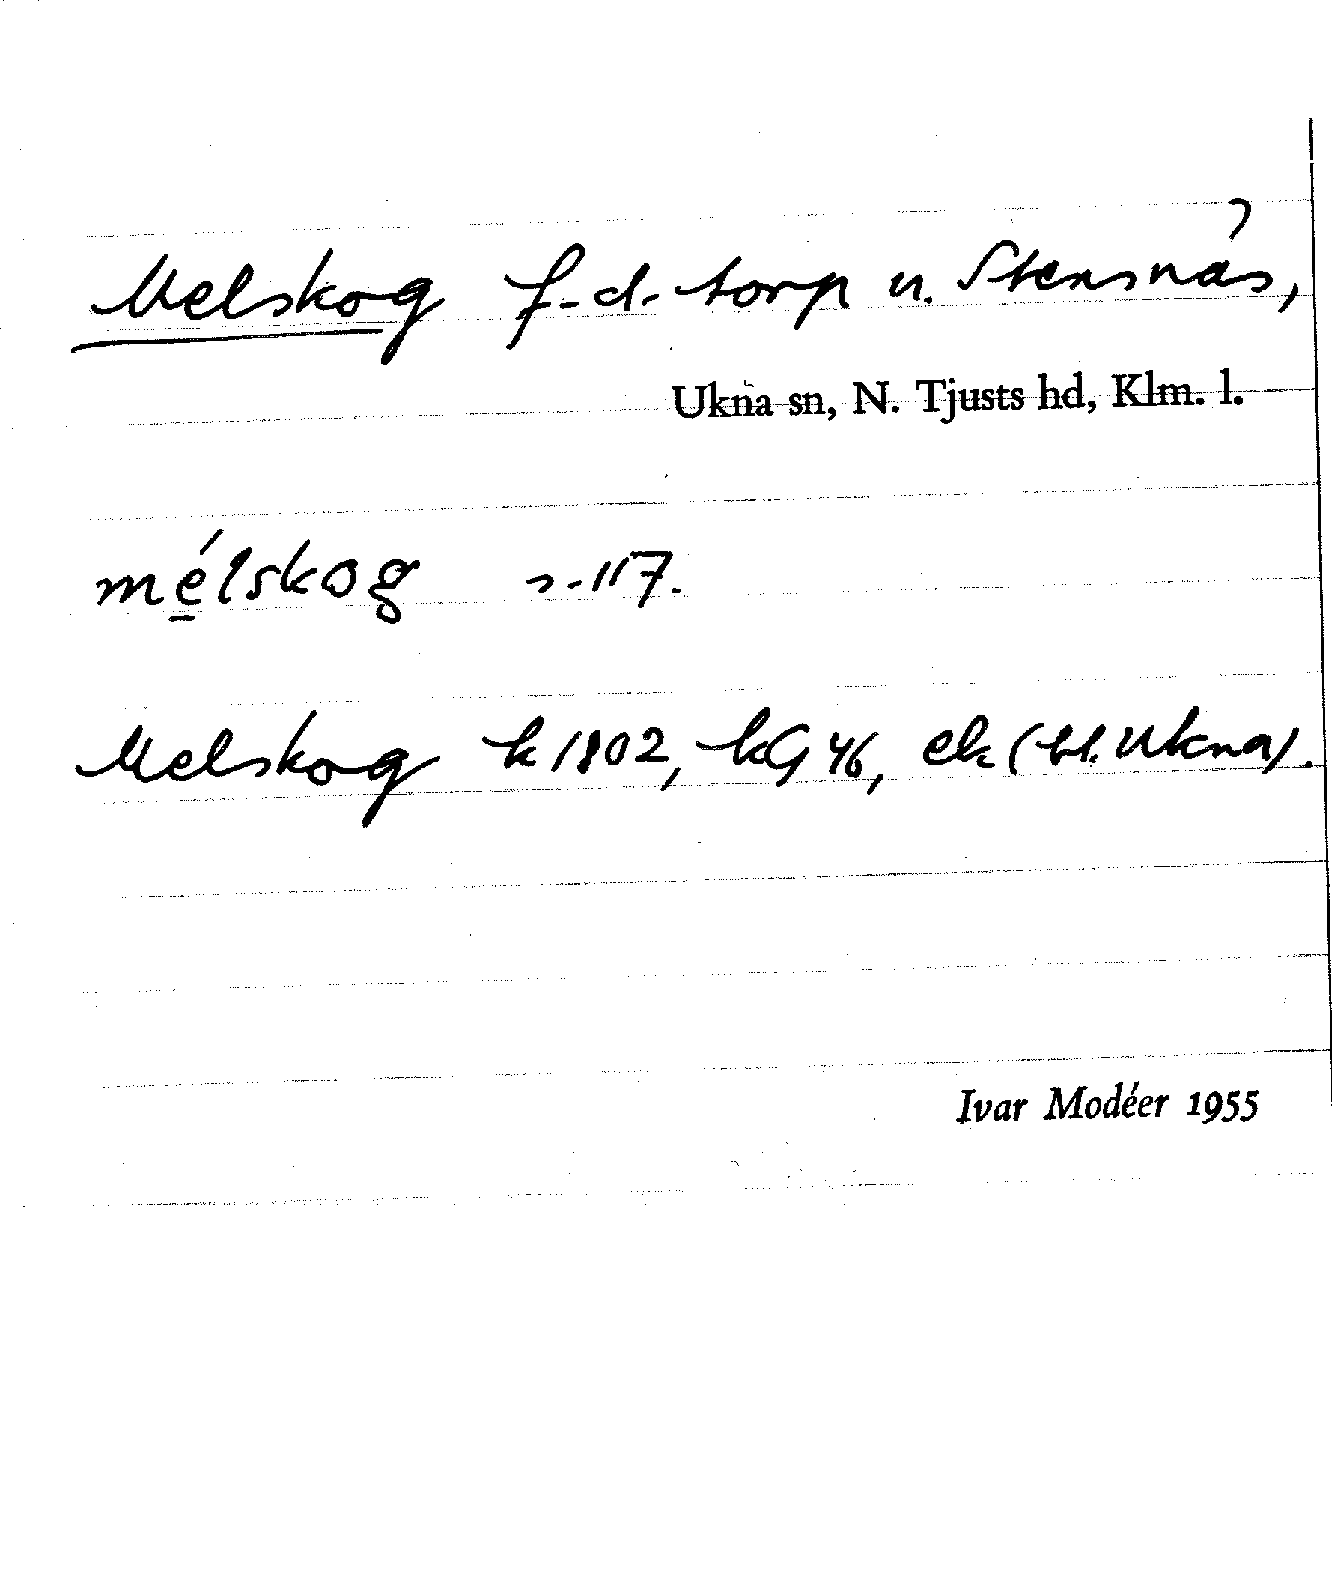 Melskog f.d. torp u. Stensnäs,
Ukna sn, N. Tjusts hd, Klm. l.
mélskog s. 117.
Melskog k 1802, kG 46, ek (bl. Ukna).
Ivar Modéer 1955